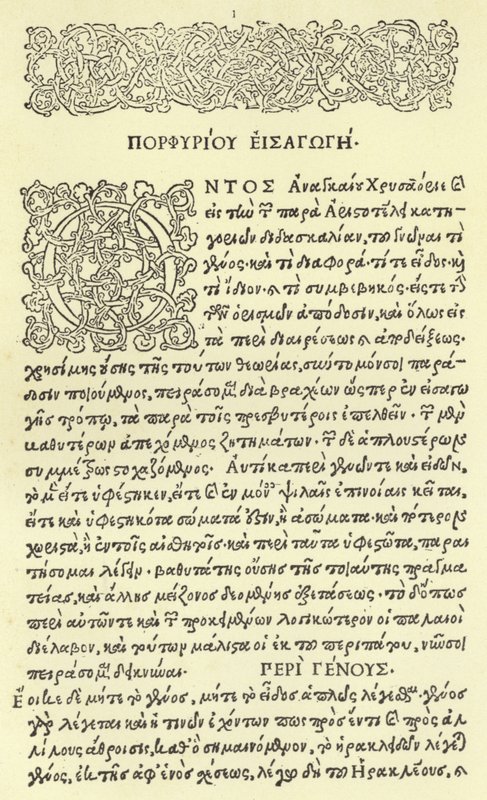 1
ΠΟΡΦΥΡΊΟΥ ΕἸΣΑΓΩΓΉ·
ΟΝΤΟΣ Ἀναγκαίου Χρυσαόριε καὶ
εἰς τὴν τῶν παρὰ Ἀριστοτέλει κατη-
γοριῶν διδασκαλίαν, τοῦ γνῶναι τὶ
γένος· καὶ τὶ διαφορά· τί τε εἶδος· καὶ
τὶ ἴδιον· καὶ τὶ συμβεβηκός· εἴς τε τὴν
τῶν ὁρισμῶν ἀπόδοσιν, καὶ ὅλως εἰς
τὰ περὶ διαιρέσεως καὶ ἀποδείξεως·
χρησίμης οὔσης τῆς τούτων θεωρίας, σύντομόν σοι παρά-
δοσιν ποιούμενος, πειράσομαι διὰ βραχέων ὥς περ ἐν εἰσαγω
γῆς τρόπῳ, τὰ παρὰ τοῖς πρεσβυτέροις ἐπελθεῖν· τῶν μὲν
βαθυτέρων ἀπεχόμενος ζητημάτων· τῶν δὲ ἁπλουστέρων
συμμέτρως στοχαζόμενος. Αὐτίκα περὶ γενῶν τε καὶ εἰδῶν,
τὸ μὲν εἴτε ὑφέστηκεν, εἴτε καὶ ἐν μόναις ψιλαῖς ἐπινοίαις κεῖται,
εἴτε καὶ ὑφεστηκότα σώματά ἐστιν, ἢ ἀσώματα· καὶ πότερον
χωριστὰ, ἢ ἐν τοῖς αἰσθητοῖς· καὶ περὶ ταῦτα ὑφεστῶτα, παραι
τήσομαι λέγειν· βαθυτάτης οὔσης τῆς τοιαύτης πραγμα
τείας, καὶ ἄλλης μείζονος δεομένης ἐξετάσεως· τὸ δʼ ὅπως
περὶ αὐτῶν τε καὶ τῶν προκειμένων λογικώτερον οἱ παλαιοὶ
διέλαβον, καὶ τούτων μάλιστα οἱ ἐκ τοῦ περιπάτου, νῦν σοι
πειράσομαι δεικνύναι. ΠΕΡῚ ΓΈΝΟΥΣ.
Ἔοικε δὲ μήτε τὸ γένος, μήτε τὸ εἶδος ἁπλῶς λέγεσθαι. γένος
γὰρ λέγεται καὶ ἡ τινῶν ἐχόντων πως πρὸς ἕν τι καὶ πρὸς ἀλ
λήλους ἄθροισις, καθʼ ὃ σημαινόμενον, τὸ ἡρακλειδῶν λέγεται
γένος, ἐκ τῆς ἀφʼ ἑνὸς σχέσεως, λέγω δὴ τοῦ Ἡρακλέους, καὶ